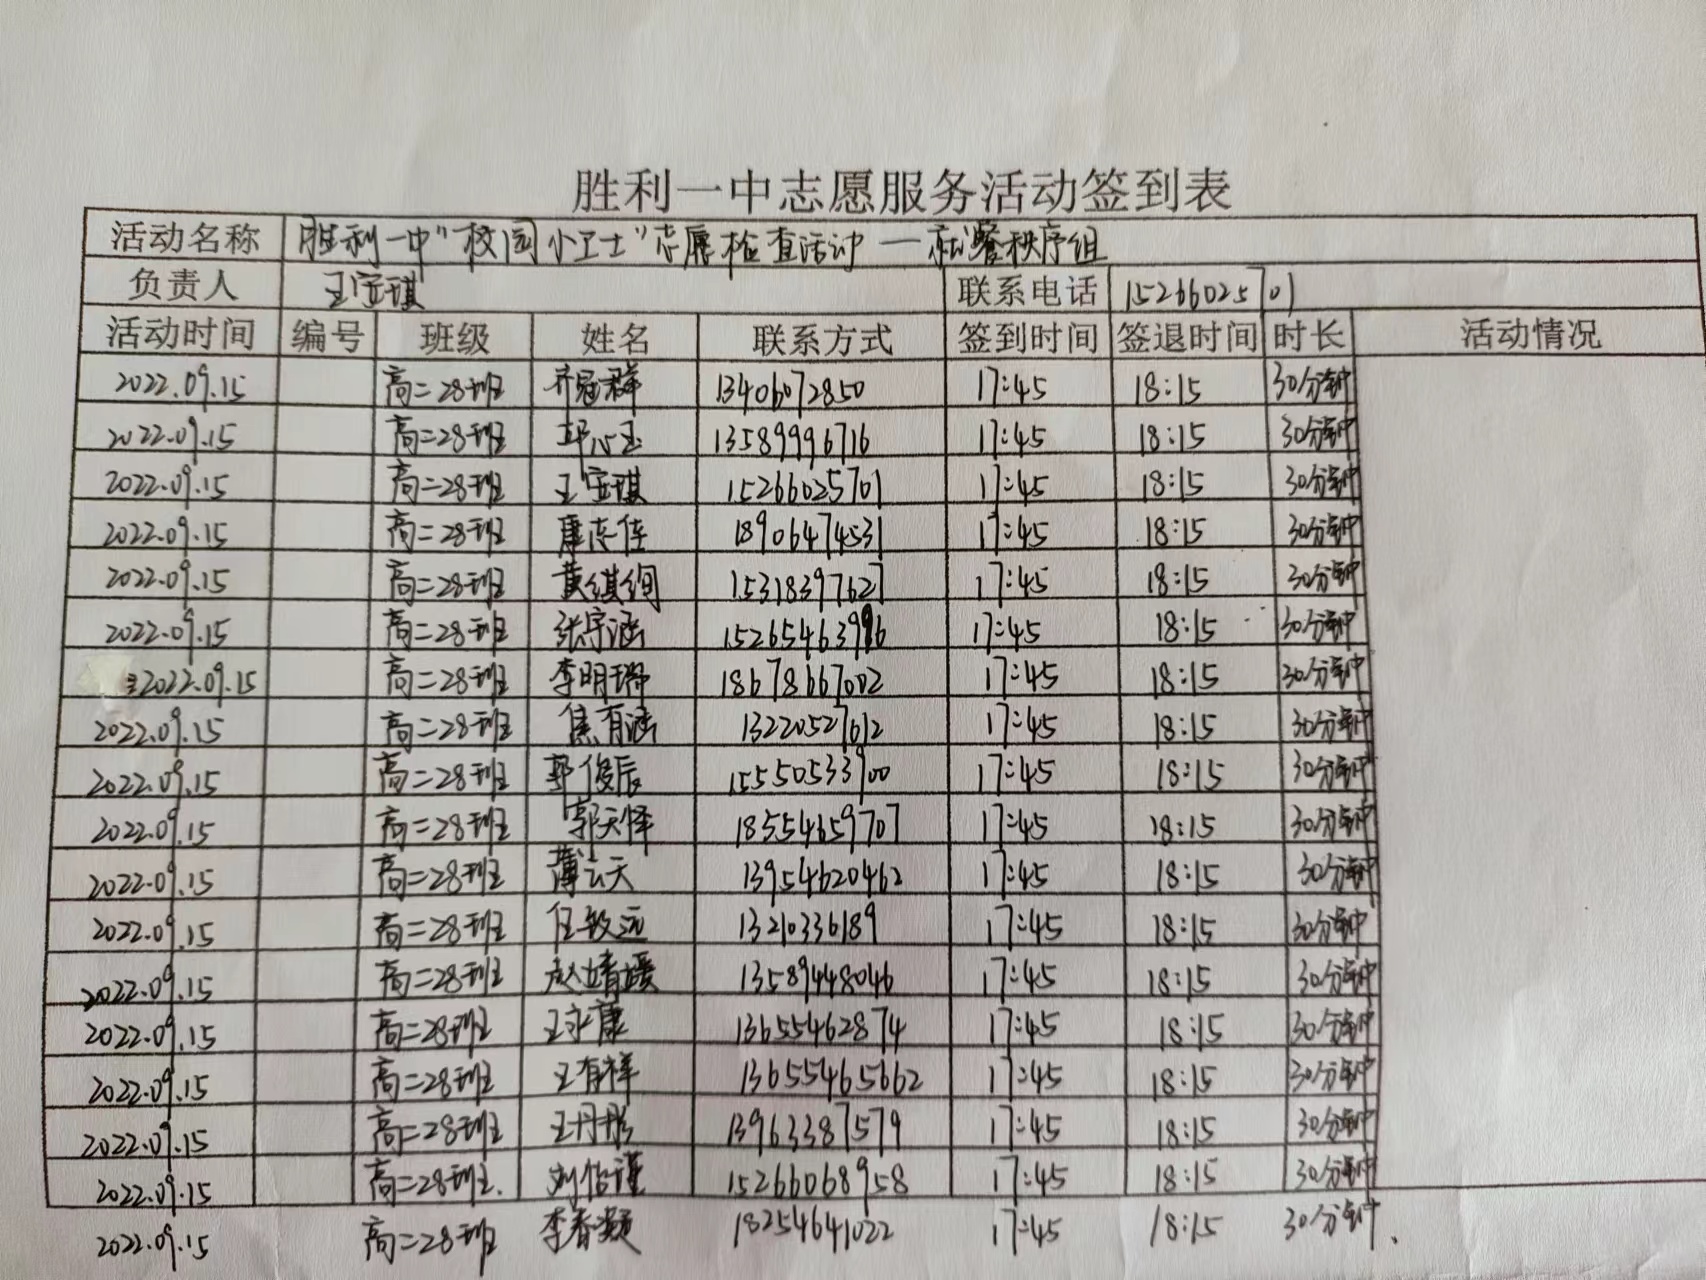 胜利一中志愿服务活动签到表
活动名称 胜利一中“校园小卫士”志愿检查活动——就餐秩序组
负责人 王宝琪 联系电话 15266025701
活动时间 编号 班级 姓名 联系方式 签到时间 签退时间 时长 活动情况
2022.09.15 高二28班 齐冠群 13406072850 17:45 18:15 30分钟
2022.09.15 高二28班 邱心玉 13589996716 17:45 18:15 30分钟
2022.09.15 高二28班 王宝琪 15266025701 17:45 18:15 30分钟
2022.09.15 高二28班 康志佳 18906474531 17:45 18:15 30分钟
2022.09.15 高二28班 黄绒绚 15318397627 17:45 18:15 30分钟
2022.09.15 高二28班 张宇涵 15265463996 17:45 18:15 30分钟
2022.09.15 高二28班 李明璐 18678667002 17:45 18:15 30分钟
2022.09.15 高二28班 焦育涵 13220527612 17:45 18:15 30分钟
2022.09.15 高二28班 郭俊辰 15550533900 17:45 18:15 30分钟
2022.09.15 高二28班 郭天怿 18554659707 17:45 18:15 30分钟
2022.09.15 高二28班 薄云天 13954620462 17:45 18:15 30分钟
2022.09.15 高二28班 任致远 13210336189 17:45 18:15 30分钟
2022.09.15 高二28班 赵靖媛 13589448046 17:45 18:15 30分钟
2022.09.15 高二28班 王永康 13655462874 17:45 18:15 30分钟
2022.09.15 高二28班 王有祥 13655465662 17:45 18:15 30分钟
2022.09.15 高二28班 王丹彤 13963387579 17:45 18:15 30分钟
2022.09.15 高二28班. 刘怡谨 15266068958 17:45 18:15 30分钟
2022.09.15 高二28班 李春灏 18254641022 17:45 18:15 30分钟.